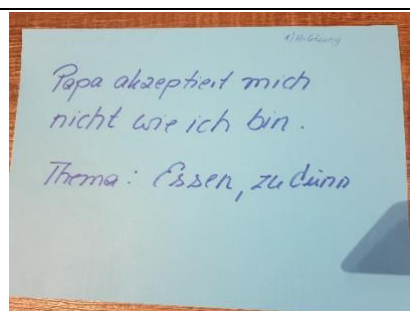 Papa akzeptiert mich
nicht wie ich bin.
Thema: Essen, zu dünn